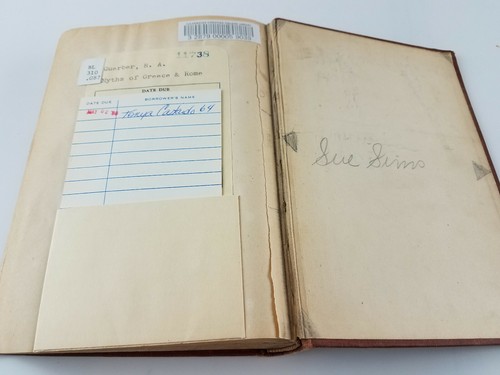 11738
BL
310
.G85
Guerber, H. A.
Myths of Greece & Rome
DATE DUE
DATE DUE BORROWER'S NAME
64
Sue Sims